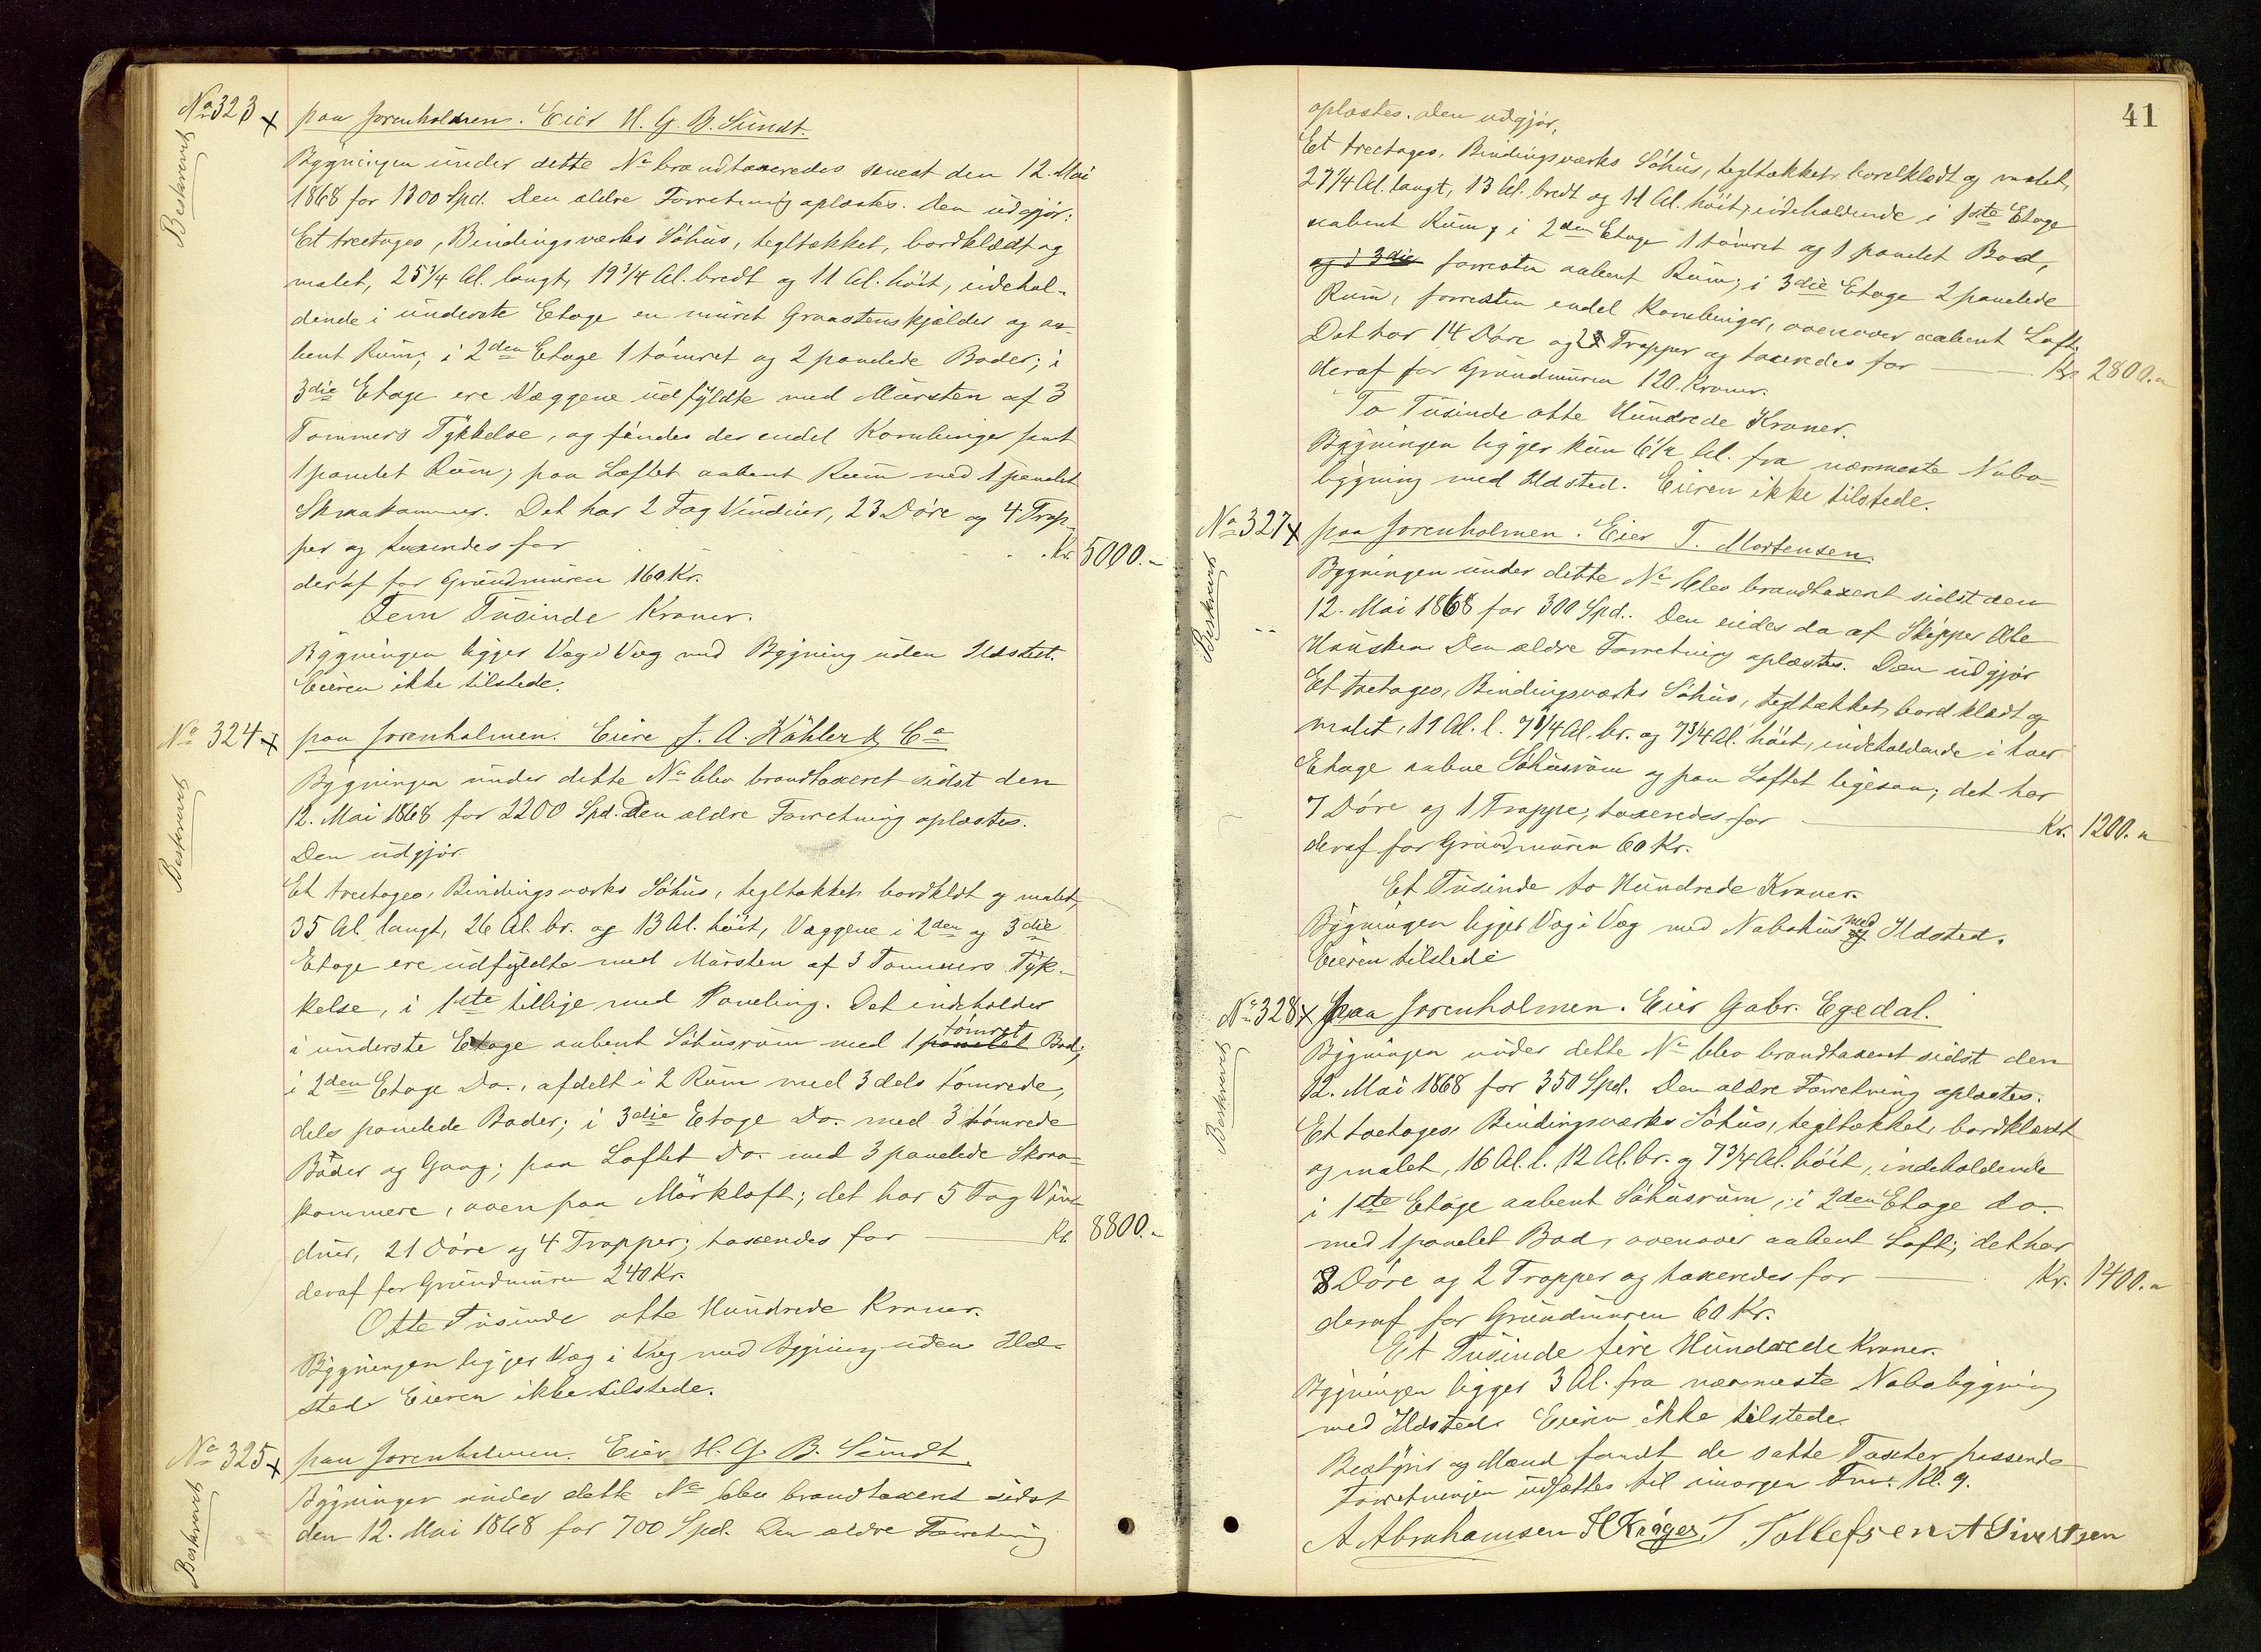 No 323 + paa Jorenholmen. Eier H. G. B. Sundt.
Beskrevet
Bygningen under dette No brandtaxeredes senest den 12. Mai
1868 for 1300 Spd. Den ældre Forretning oplæstes. Den udgjør:
Et treetages, Bindingsværks Söhus, tegltækket, bordklædt og
malet, 25 3/4 Al. langt, 19 3/4 Al. bredt og 11 Al. höit, indehol-
dende i underste Etage en muret Graastenskjælder og aa-
bent Rum; i 2den Etage 1 tömret og 2 panelede Boder; i
3die Etage ere Væggene udfyldte med Mursten af 3
Tommers Tykkelse, og findes der endel Kornbinger samt
1 panelet Rum; paa Loftet aabent Rum med 1 panelet
Skraakammer. Det har 2 Fag Vinduer, 23 Döre og 4 Trap-
per og taxeredes for . . . Kr. 5000.-
deraf for Grundmuren 160 Kr.
Fem Tusinde Kroner.
Bygningen ligger Væg i Væg med Bygning uden Ildsted.
Eieren ikke tilstede.
No 324 + paa Jorenholmen. Eiere J. A. Köhler & Co
Beskrevet
Bygningen under dette No blev brandtaxeret sidst den
12. Mai 1868 for 2200 Spd. Den ældre Forretning oplæstes.
Den udgjør
Et treetages, Bindingsværks Söhus, tegltækket, bordkldt og malet,
35 Al. langt, 26 Al. br. og 13 Al. höit, Væggene i 2den og 3die
Etage ere udfyldte med Mursten af 3 Tommers Tyk-
kelse, i 1ste tillige med Paneling. Det indeholder
i underste Etage aabent Söhusrum med 1 panelet tömret Bod;
i 2den Etage Do., afdelt i 2 Rum med 3 dels tömrede,
dels panelede Boder; i 3die Etage Do. med 3 tömrede
Boder og Gang; paa Loftet Do. med 3 panelede Skraa-
kammere, oven paa Mörkloft; det har 5 Fag Vin-
duer, 21 Döre og 4 Trapper; taxeredes for Kr. 8800.-
deraf for Grundmuren 240 Kr.
Otte Tusinde otte Hundrede Kroner.
Bygningen ligger Væg i Væg med Bygning uden Ild-
sted. Eieren ikke tilstede.
No 325 + paa Jorenholmen. Eier H. G. B. Sundt.
Beskrevet
Bygningen under dette No blev brandtaxeret sidst
den 12. Mai 1868 for 700 Spd. Den ældre Forretning
41
oplæstes. Den udgjør,
Et treetages, Bindingsværks Söhus, tegltækket, bordklædt og malet,
27 1/4 Al. langt, 13 Al. bredt og 11 Al. höit, indeholdende i 1ste Etage
aabent Rum, i 2den Etage 1 tömret og 1 panelet Bod,
og i 3die forresten aabent Rum; i 3die Etage 2 panelede
Rum, forresten endel Kornbinger, ovenover aabent Loft.
Det har 14 Döre og 3 Trapper og taxeredes for Kr. 2800.-
deraf for Grundmuren 120 Kroner.
To Tusinde otte Hundrede Kroner.
Bygningen ligger kun 6 1/2 Al. fra nærmeste Nabo-
bygning med Ildsted. Eieren ikke tilstede.
No 327 + paa Jorenholmen. Eier T. Mortensen.
Beskrevet
Bygningen under dette No blev brandtaxeret sidst den
12. Mai 1868 for 300 Spd.. Den eiedes da af Skipper Ole
Hausken. Den ældre Forretning oplæstes. Den udgjør
Et toetages, Bindingsværks Söhus, tegltækket, bordklædt og
malet, 11 Al. l. 7 1/4 Al. br. og 7 3/4 Al. höit, indeholdende i hver
Etage aabne Söhusrum og paa Loftet ligesaa; det har
7 Döre og 1 Trappe, taxeredes for Kr. 1200.-
deraf for Grundmuren 60 Kr.
Et Tusinde to Hundrede Kroner.
Bygningen ligger Væg i Væg med Nabohus og med Ildsted.
Eieren tilstede
No 328 + paa Jorenholmen. Eier Gabr. Egedal.
Beskrevet
Bygningen under dette No blev brandtaxeret sidst den
12. Mai 1868 for 350 Spd. Den ældre Forretning oplæstes.
Et toetages, Bindingsværks Söhus, tegltækket, bordklædt
og malet, 16 Al. l. 12 Al. br. og 7 3/4 Al. höit, indeholdende
i 1ste Etage aabent Söhusrum, i 2den Etage do.
med 1 panelet Bod, ovenover aabent Loft; det har
8 Döre og 2 Trapper og taxeredes for Kr. 1400.-
deraf for Grundmuren 60 Kr.
Et Tusinde fire Hundrede Kroner.
Bygningen ligger 3 Al. fra nærmeste Nabobygning
med Ildsted. Eieren ikke tilstede.
Bestyrer og Mænd fandt de satte Taxter passende
Forretningen udsættes til imorgen Fm. Kl. 9.
A Abrahamsen H Kröger T Tollefsen A Sivertsen